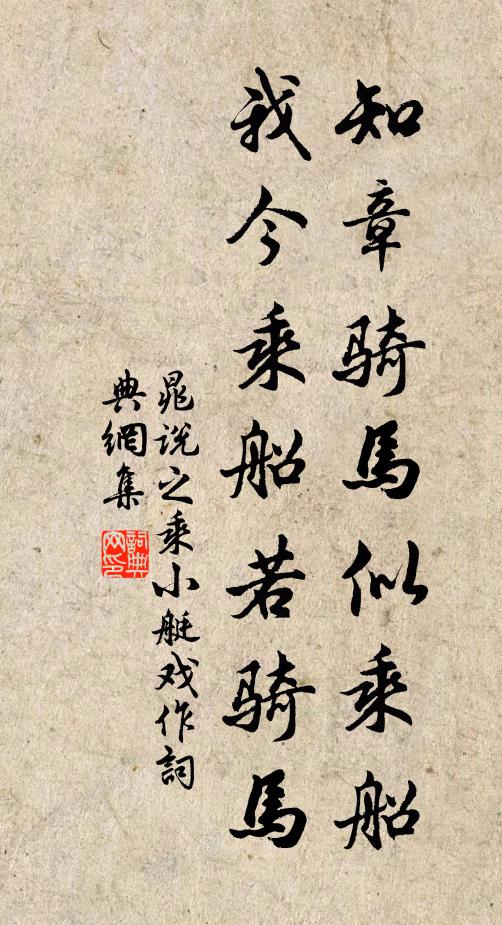 知章騎馬似乘船
我今乘船若騎馬
晁說之乘小艇戏作詞
典網集
詞典
网印